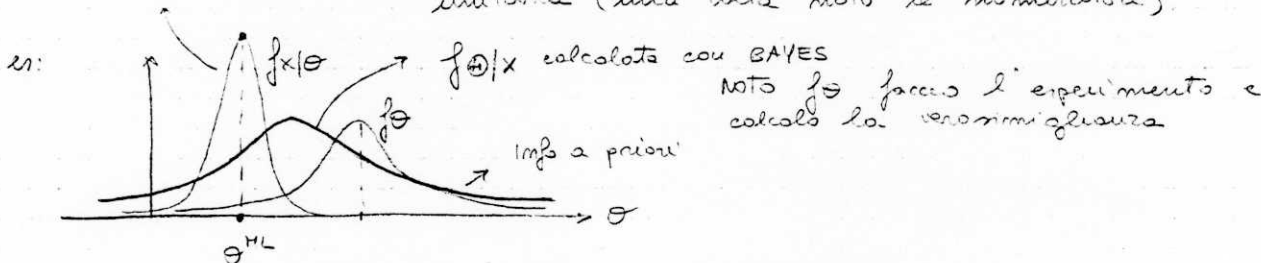 (una volta noto il numeratore)
es:
fx|θ
fΘ|X calcolata con BAYES
NOTO fθ faccio l'esperimento e
calcolo la verosimiglianza
fθ
Info a priori
θ
θᴹᴸ